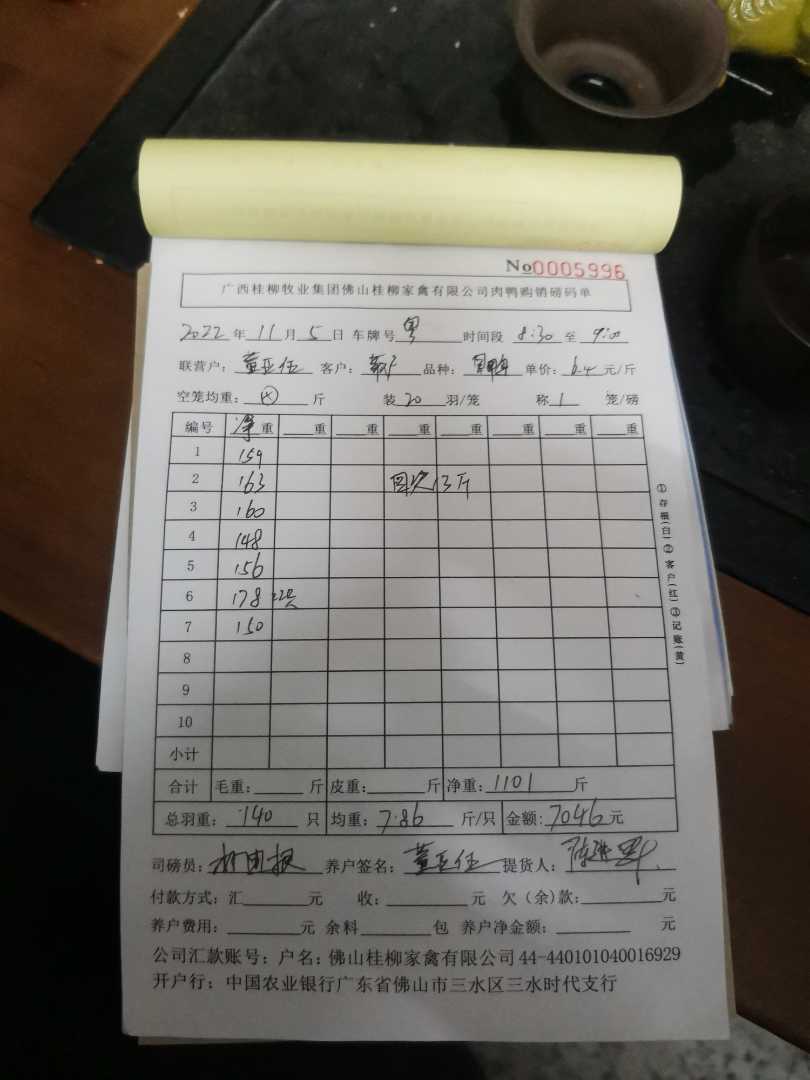 No0005996
广西桂柳牧业集团佛山桂柳家禽有限公司肉鸭购销磅码单
2022 年 11 月 5 日 车牌号 粤 时间段 8:30 至 9:00
联营户: 董亚伍 客户: 品种: 单价: 6.4 元/斤
空笼均重: 斤 装 20 羽/笼 称 1 笼/磅
编号 净重 重 重 重 重 重 重 重
1 159
2 163 13斤
3 160
4 148
5 156
6 178 22只
7 150
8
9
10
小计
合计 毛重: 斤 皮重: 斤 净重: 1101 斤
总羽重: 140 只 均重: 7.86 斤/只 金额: 7046 元
司磅员: 养户签名: 董亚伍 提货人:
付款方式: 汇 元 收: 元 欠(余)款: 元
养户费用: 元 余料 包 养户净金额: 元
公司汇款账号: 户名: 佛山桂柳家禽有限公司 44-440101040016929
开户行: 中国农业银行广东省佛山市三水区三水时代支行
①存根(白)②客户(红)③记账(黄)